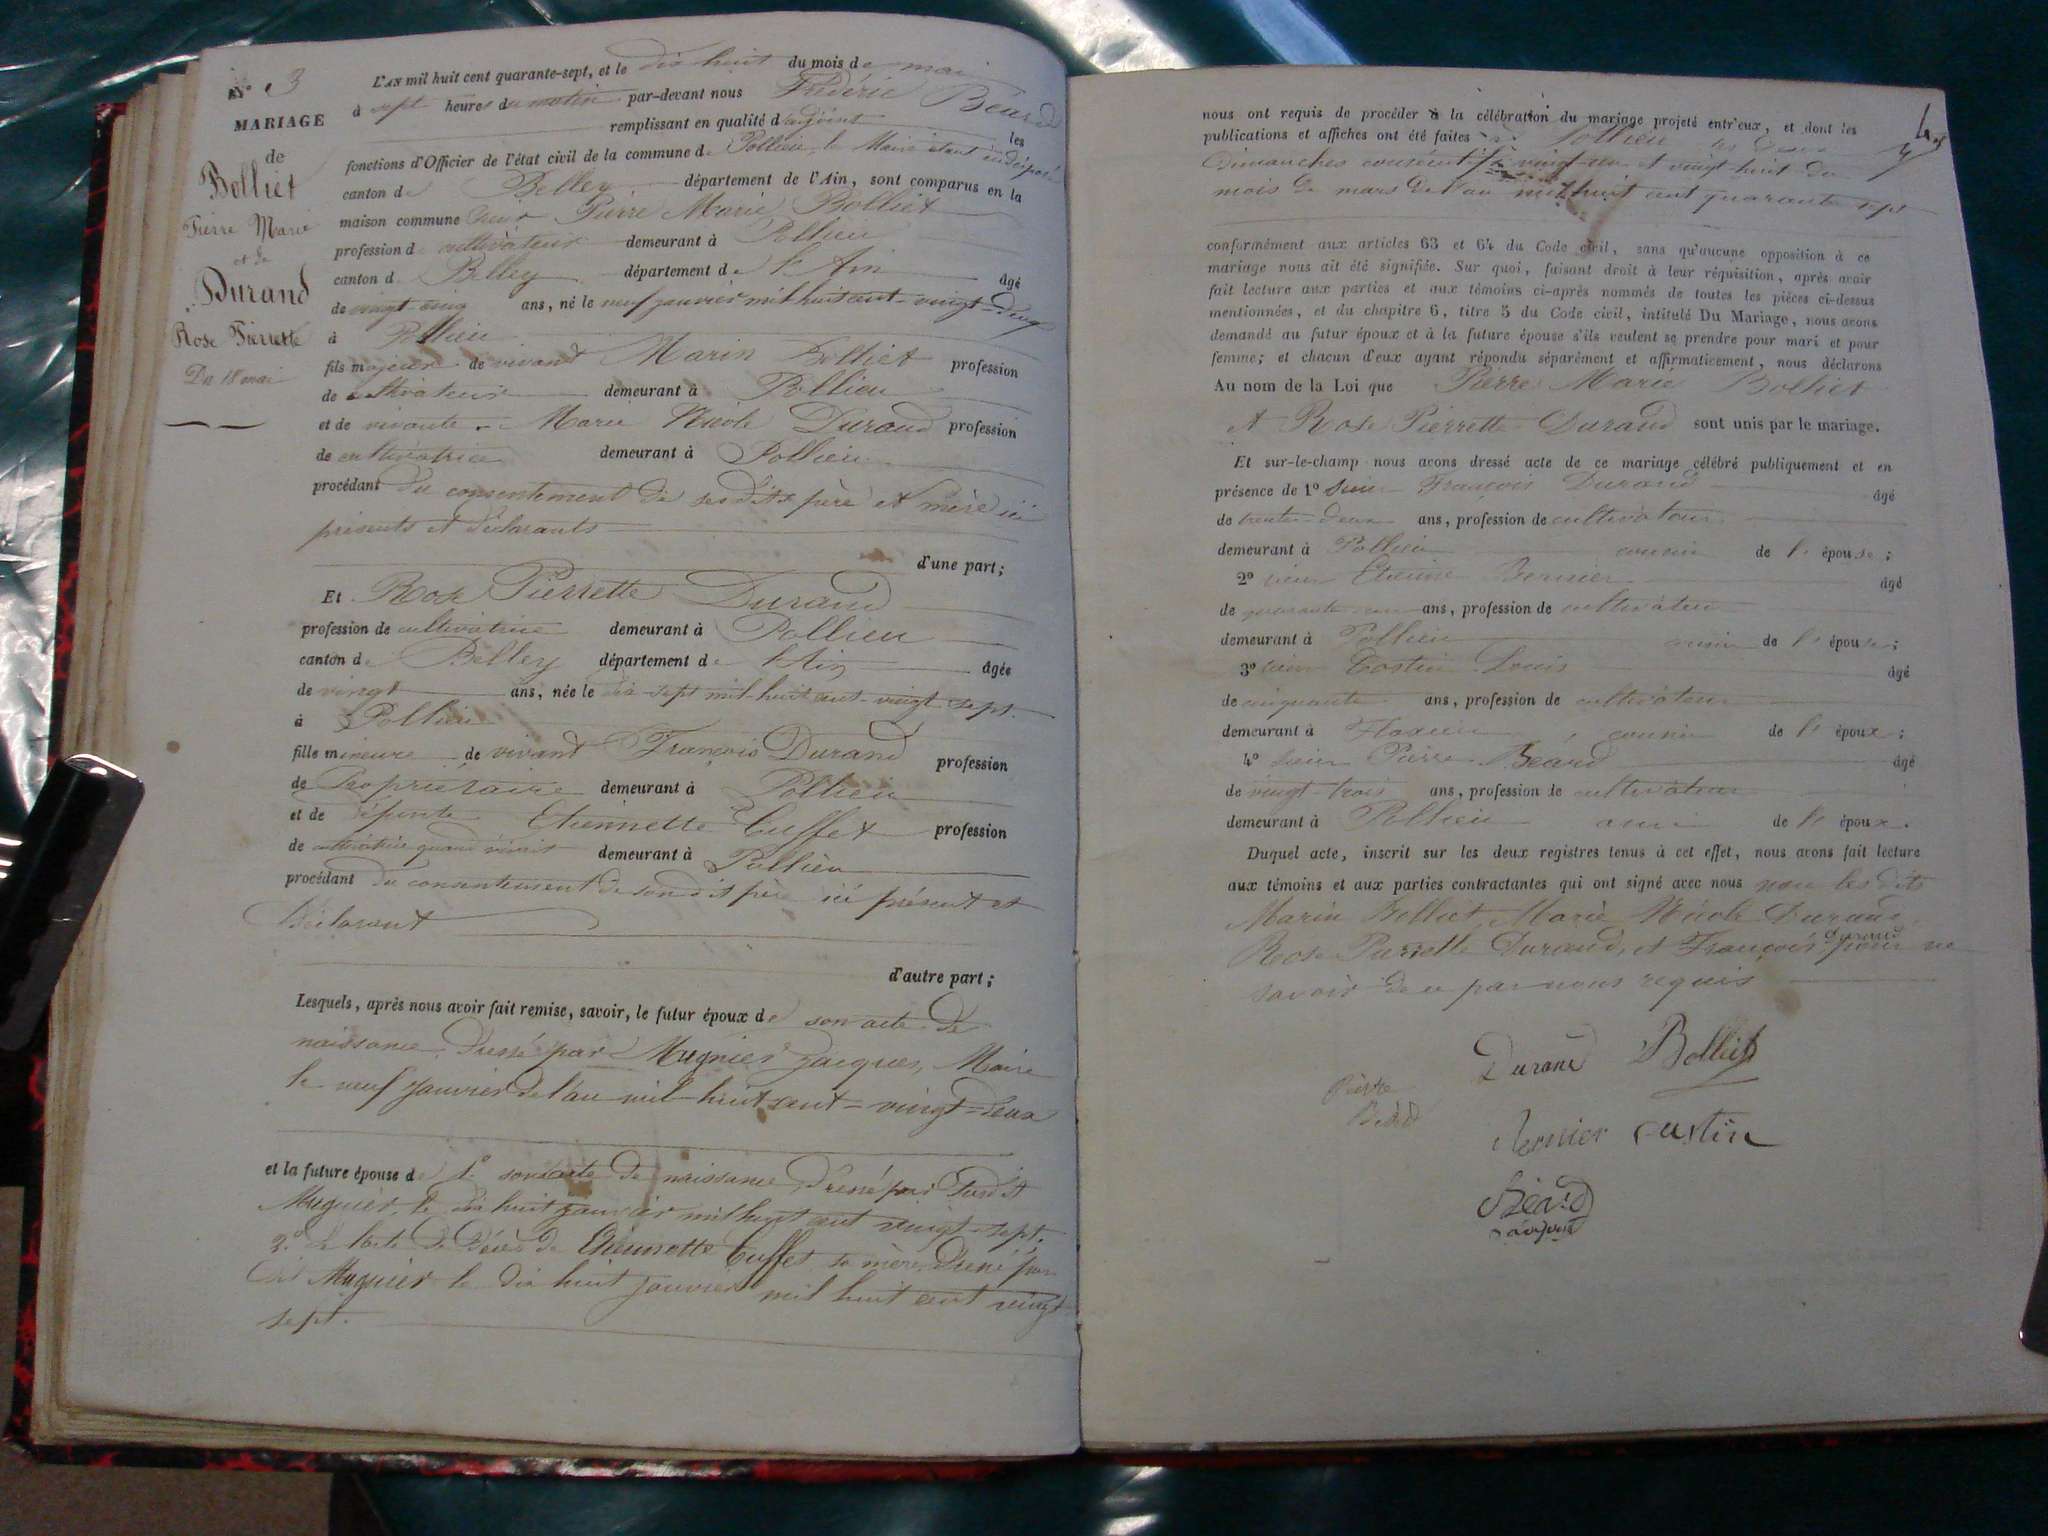 N° 3
MARIAGE
de
Bolliet
Pierre Marie
et de
Durand
Rose Pierrette
Du 18 mai
L'AN mil huit cent quarante-sept, et le dix huit du mois de mai
à sept heures du matin par-devant nous Frédéric Béard
remplissant en qualité d'adjoint les
fonctions d'Officier de l'état civil de la commune de Pollieu, le Maire étant
canton de Belley département de l'Ain, sont comparus en la
maison commune sieur Pierre Marie Bolliet
profession de cultivateur demeurant à Pollieu
canton de Belley département de l'Ain âgé
de vingt-cinq ans, né le neuf janvier mil huit cent-vingt-deux
à Pollieu
fils majeur de vivant Marin Bolliet profession
de cultivateur demeurant à Pollieu
et de vivante Marie Nicole Durand profession
de cultivatrice demeurant à Pollieu
procédant du consentement de ses dits père et mère ici
présents et déclarants
d'une part;
Et Rose Pierrette Durand
profession de cultivatrice demeurant à Pollieu
canton de Belley département de l'Ain âgée
de vingt ans, née le dix-sept mil-huit cent-vingt-sept.
à Pollieu
fille mineure de vivant François Durand profession
de Propriétaire demeurant à Pollieu
et de défunte Etiennette Cuffet profession
de cultivatrice quand vivait demeurant à Pollieu
procédant du consentement de son dit père ici présent et
déclarant
d'autre part;
Lesquels, après nous avoir fait remise, savoir, le futur époux de son acte de
naissance, dressé par Mugnier Jacques, Maire
le neuf janvier de l'an mil-huit cent-vingt-deux
et la future épouse de 1° son acte de naissance, dressé par
Mugnier, le dix huit janvier mil huit cent vingt-sept.
2° de l'acte de décès de Etiennette Cuffet sa mère, dressé par
dit Mugnier le dix huit janvier mil huit cent vingt
sept.
nous ont requis de procéder à la célébration du mariage projeté entr'eux, et dont les
publications et affiches ont été faites à Pollieu les deux
Dimanches consécutifs vingt un et vingt huit du
mois de mars de l'an mil huit cent quarante sept
conformément aux articles 63 et 64 du Code civil, sans qu'aucune opposition à ce
mariage nous ait été signifiée. Sur quoi, faisant droit à leur réquisition, après avoir
fait lecture aux parties et aux témoins ci-après nommés de toutes les pièces ci-dessus
mentionnées, et du chapitre 6, titre 5 du Code civil, intitulé Du Mariage, nous avons
demandé au futur époux et à la future épouse s'ils veulent se prendre pour mari et pour
femme; et chacun d'eux ayant répondu séparément et affirmativement, nous déclarons
Au nom de la Loi que Pierre Marie Bolliet
et Rose Pierrette Durand sont unis par le mariage.
Et sur-le-champ nous avons dressé acte de ce mariage célébré publiquement et en
présence de 1° sieur François Durand âgé
de trente-deux ans, profession de cultivateur
demeurant à Pollieu cousin de l'épouse;
2° sieur Etienne Bernier âgé
de quarante-un ans, profession de cultivateur
demeurant à Pollieu cousin de l'épouse;
3° sieur Costin Louis âgé
de cinquante ans, profession de cultivateur
demeurant à Flaxieu cousin de l'époux;
4° sieur Pierre Béard âgé
de vingt-trois ans, profession de cultivateur
demeurant à Pollieu ami de l'époux.
Duquel acte, inscrit sur les deux registres tenus à cet effet, nous avons fait lecture
aux témoins et aux parties contractantes qui ont signé avec nous non les dits
Marin Bolliet, Marie Nicole Durand
Rose Pierrette Durand, et François Durand pour ne
savoir de ce par nous requis
Durand Bolliet
Pierre
Béard
Bernier Costin
Béard
adjoint